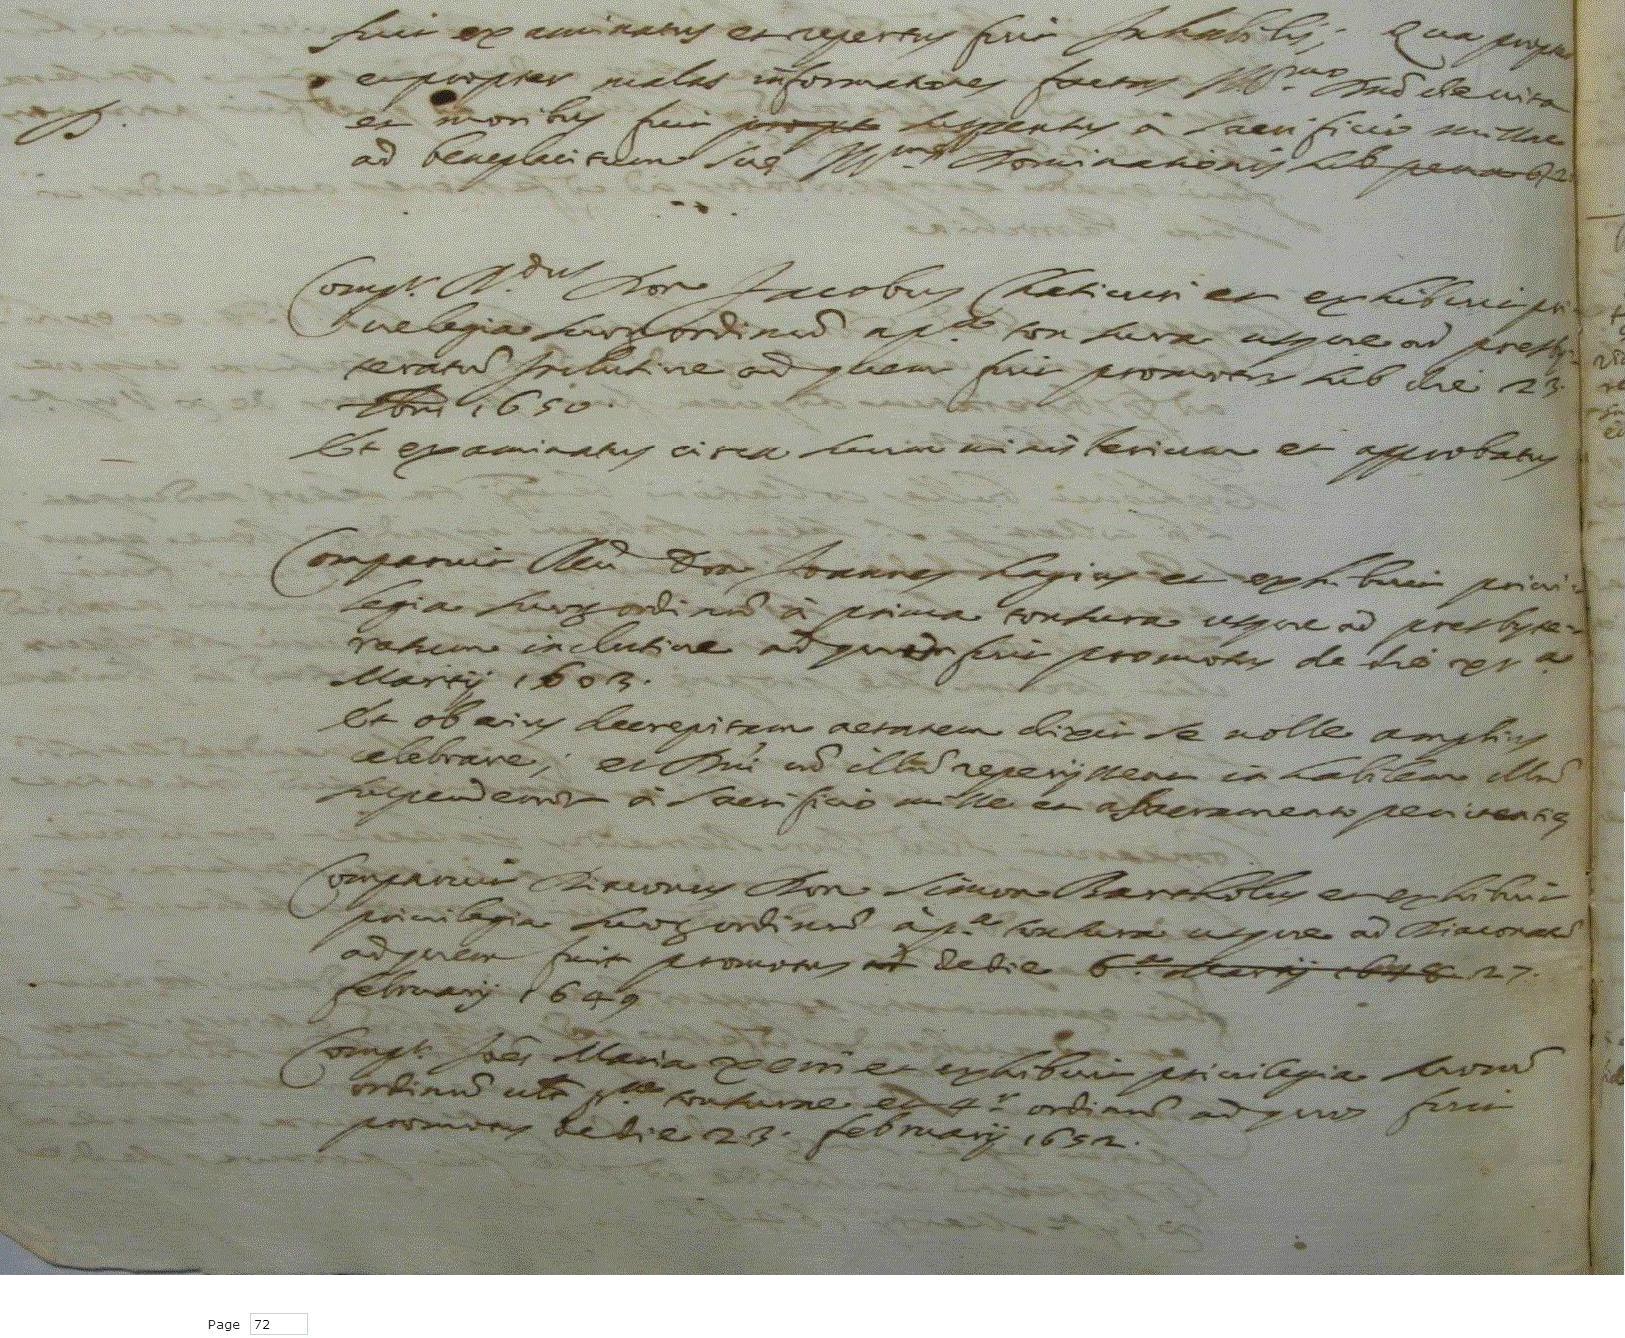 fuit examinatus et repertus fuit Inhabilis; Qua propter
et propter malas informationes factas Ill.mo Dno de vita
et moribus fuit propter suspensus à sacrificio missae
ad beneplacitum suę Ill.mę Dominationis sub pena
Comp.t R.dus Don Jacobus et exhibuit pri
uilegia suorum ordinum a p.a tonsura usque ad presby
teratum inclusive ad quem fuit promotus sub die 23
1650.
Et examinatus circa suum ministerium et approbatus
Comparuit Don Joannes et exhibuit priui
legia suorum ordinum à prima tonsura usque ad presbyte
ratum inclusive ad quem fuit promotus de die xv a
Martij 1603.
Et ob eius decrepitam aetatem dixit se nolle amplius
celebrare; et Dni illum reperijssent inhabilem illum
suspenderunt à sacrificio misse et a sacramento penitentię
Comparuit Diaconus Don Simon Bartholus et exhibuit
priuilegia suorum ordinum à p.a tonsura usque ad Diaconatum
ad quem fuit promotus ad de die 6.a Martij 27.
februarij 1649
Comp.t Joes Maria et exhibuit priuilegia suorum
ordinum p.ae tonsurae et 4.r ordinum ad quos fuit
promotus de die 23. februarij 1652.
Page 72